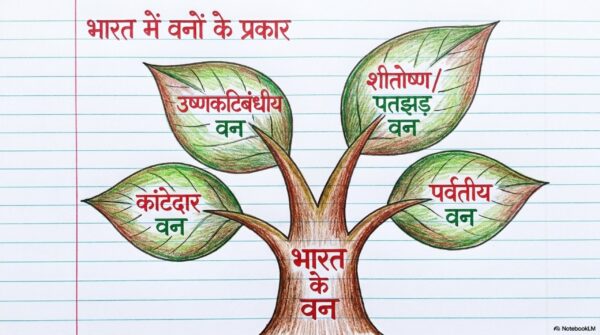 भारत में वनों के प्रकार
उष्णकटिबंधीय
वन
शीतोष्ण/
पतझड़
वन
कांटेदार
वन
पर्वतीय
वन
भारत
के
वन
NotebookLM